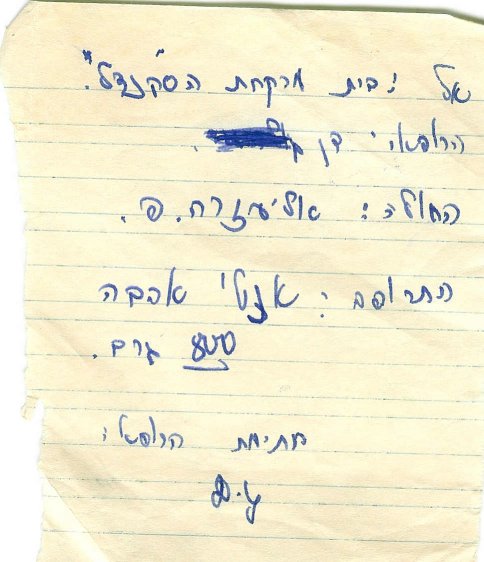 אל : בית מרקחת ה"סקנדל".
הרופא : דן
החולה : אליעזרה. פ.
התרופה : אנטי אהבה
גרם.
חתימת הרופא :
D.y